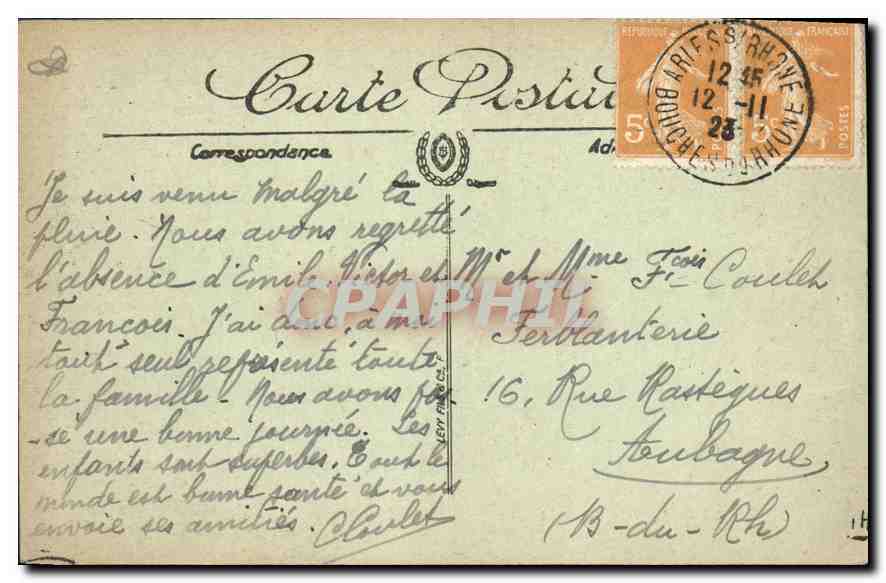 Carte Postale
Correspondance
RÉPUBLIQUE FRANÇAISE
5c
5c
POSTES
ARLES S/RHONE
12 45
12 -11
23
BOUCHES DU RHONE
Je suis venu malgré la
pluie. Nous avons regretté
l'absence d'Emile, Victor et
François. J'ai donc, à moi
tout seul représenté toute
la famille - Nous avons pas
-sé une bonne journée. Les
enfants sont superbes. Tout le
monde est bonne santé et vous
envoie ses amitiés. CCoulet
LEVY FILS & Cie P
Mr et Mme Fcois Coulet
Ferblanterie
16, Rue Rastègues
Aubagne
(B-du-Rh)
CPAPHIL